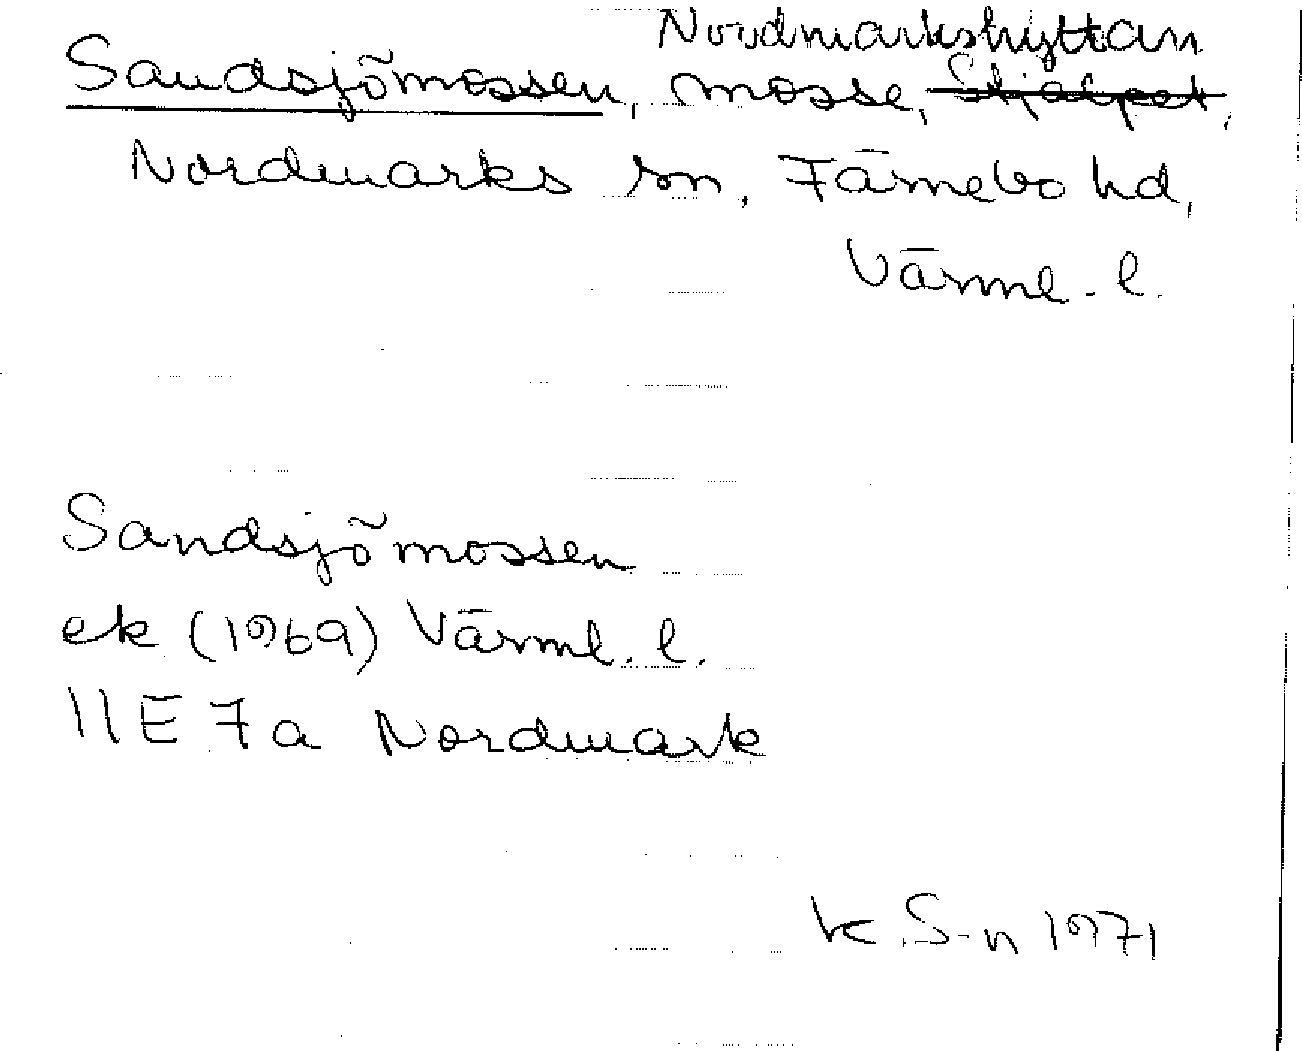 Nordmarkshyttan
Sandsjömossen, mosse, Stjälpet,
Nordmarks sn, Färnebo hd,
Värml. l.
Sandsjömossen
ek (1969) Värml. l.
11E 7a Nordmark
K. S-n 1971